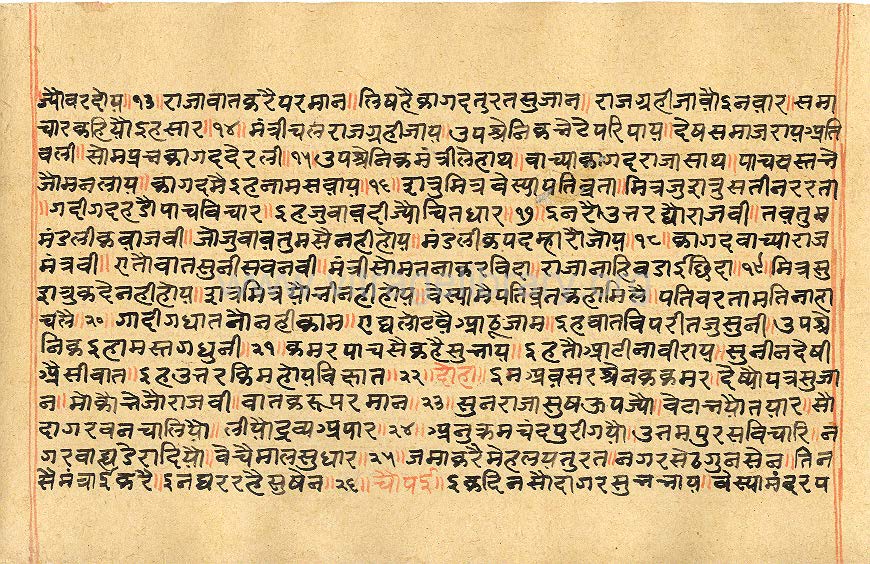 ज्यौवरदोय॥१३॥राजावातकरैपरमान॥लिषहैकागदतुरतसुजान॥राजग्रहीजावौइनवार॥समा
चारकहियौइहसार॥१४॥मंत्रीचलराजग्रहीजाय॥उपश्रेनिकनैदैपरिपाय॥देषसमाजराय
वली॥सोमप्रनकागददैरली॥१५॥उपश्रेनिकमंत्रीलैहाथ॥वाच्याकागदराजासाथ॥पाच
जौमनलाय॥कागदमैइहनामसवाय॥१६॥शत्रुमित्रवेस्यापतिव्रता॥मित्रजुशत्रुसतीनररता
॥गदीगदहडौपाचविचार॥इहजुवावदीज्यौचितधार॥१७॥इनरौउत्तरद्यौराजवी॥तवतुम
मंडलीकवाजवी॥जोजुवावतुमसैनहीहोय॥मंडलीकपदम्हारौजोय॥१८॥कागदवाच्याराज
मंत्रवी॥एतौवातसुनीसवनवी॥मंत्रीसोमतनाकरविदा॥राजानाहि॥१९॥मित्रसु
शत्रुकदेनहीहोय॥शत्रमित्रसोचीनहीहोय॥वेस्यामैपतिव्रतकहा॥पतिवरतामतिनाहा
चलै॥२०॥गादीगधातनौनहीकाम॥जाम॥इहवातविपरीतजुसुनी॥उपश्रे
निकइहामस्तगधुनी॥२१॥कमरपाचसैकहैसुचाय॥इहतौ॥सुनीनदेषी
असीवात॥इहउत्तरकिमहोयविकात॥२२॥दोहा॥इमअवसरश्रेनककमर॥देष्यौपत्रसुजा
न॥मोकौदेजौराजवी॥वातकरूपरमान॥२३॥सुनराजासुषऊपज्यौ॥तयार॥सौ
दागरवनचालियौ॥लीयोद्रव्यअपार॥२४॥अनुक्रमचंदपुरीगयौ॥उत्तमपुरसविचारि॥न
गरवाद्यडेरादियौ॥वेचैमालसुधार॥२५॥जमाकरैमेहलयतुरत॥नगरसेठगुनसेन॥तिन
सैमंचाईकरै॥इनघररहैसुषेन॥२६॥चौपई॥इकदिनसौदागरसु॥वेस्यामंदरप